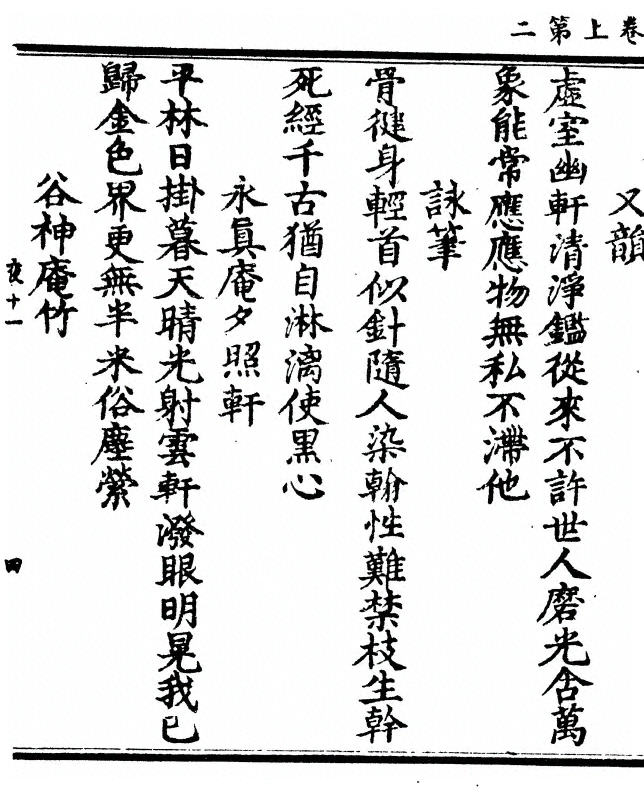 卷上第二
又韻
虛室幽軒清淨鑑從來不許世人磨光含萬
象能常應應物無私不滯他
詠筆
骨徤身輕首似針隨人染翰性難禁枝生幹
死經千古猶自淋漓使黒心
永眞庵夕照軒
平林日掛暮天晴光射雲軒潑眼明晃我已
歸金色界更無半米俗塵縈
谷神庵竹
夜十一
四